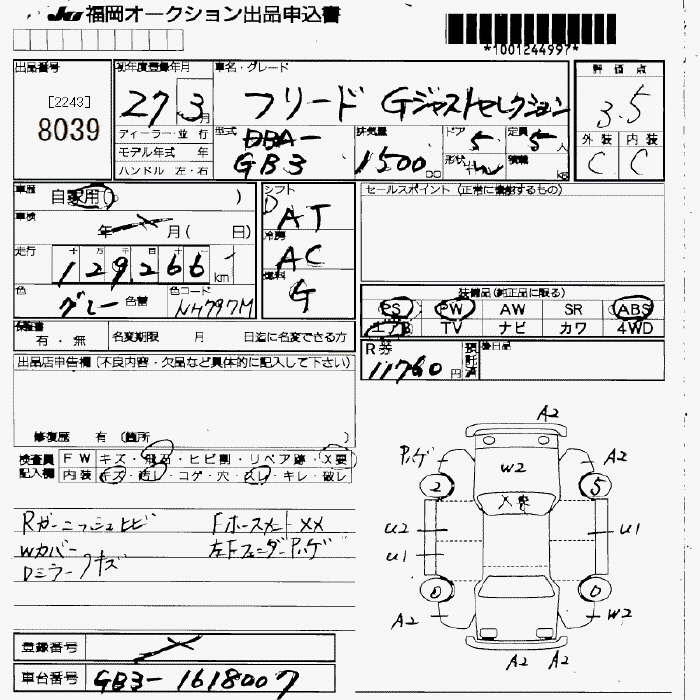 JU 福岡オークション出品申込書
*1001244997*
出品番号
[2243]
8039
初年度登録年月
27 3月
ディーラー・並行
モデル年式 年
ハンドル 左・右
車名・グレード
フリード Gジャストセレクション
型式
DBA-
GB3
排気量
1500 CC
ドア
5
形状
定員
5人
積載
kg
評価点
3.5
外装 内装
C C
車歴
自家用( )
車検
年 月( 日)
走行
十 万 千 百 十 一
129,266 km
色
グレー
色替
色コード
NH797M
シフト
D AT
冷房
AC
燃料
G
セールスポイント (正常に機能するもの)
装備品(純正品に限る)
PS PW AW SR ABS
エアB TV ナビ カワ 4WD
保証書
有・無
名変期限 月 日迄に名変できる方
R券
11760 円
預託済
後日品
出品店申告欄 (不良内容・欠品など具体的に記入して下さい)
修復歴 有 (箇所 )
検査員記入欄
FW キズ・飛石・ヒビ割・リペア跡・X要
内装 キズ・汚レ・コゲ・穴・スレ・キレ・破レ
Rガーニッシュヒビ
Wカバー
Dミラー キズ
Fホースメント XX
左Fフェンダー Pハゲ
A2
Pハゲ
W2
A2
2
5
X要
U2
U1
U1
0
0
A2
W2
A2 A2
登録番号
車台番号
GB3-1618007